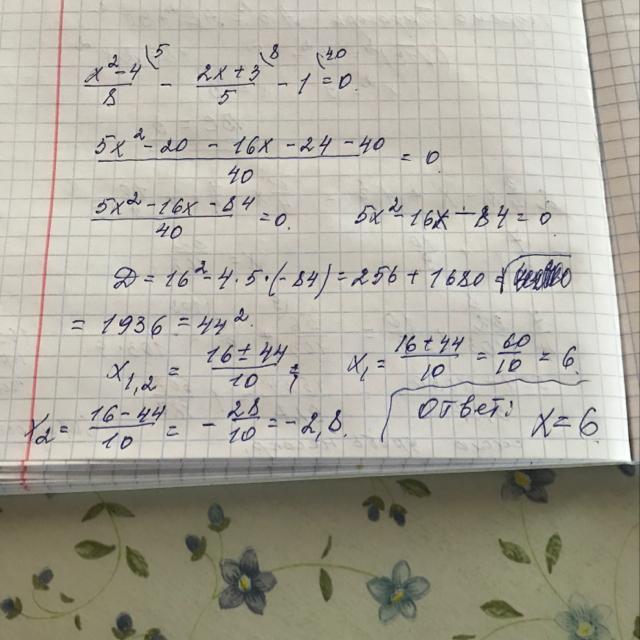 x² - 4 \5 / 8 - 2x + 3 \8 / 5 - 1 \40 = 0.
5x² - 20 - 16x - 24 - 40 / 40 = 0.
5x² - 16x - 84 / 40 = 0. 5x² - 16x - 84 = 0.
Д = 16² - 4·5·(-84) = 256 + 1680 =
= 1936 = 44².
x₁,₂ = 16 ± 44 / 10 ; x₁ = 16 + 44 / 10 = 60 / 10 = 6.
x₂ = 16 - 44 / 10 = - 28 / 10 = -2,8. Ответ: x = 6